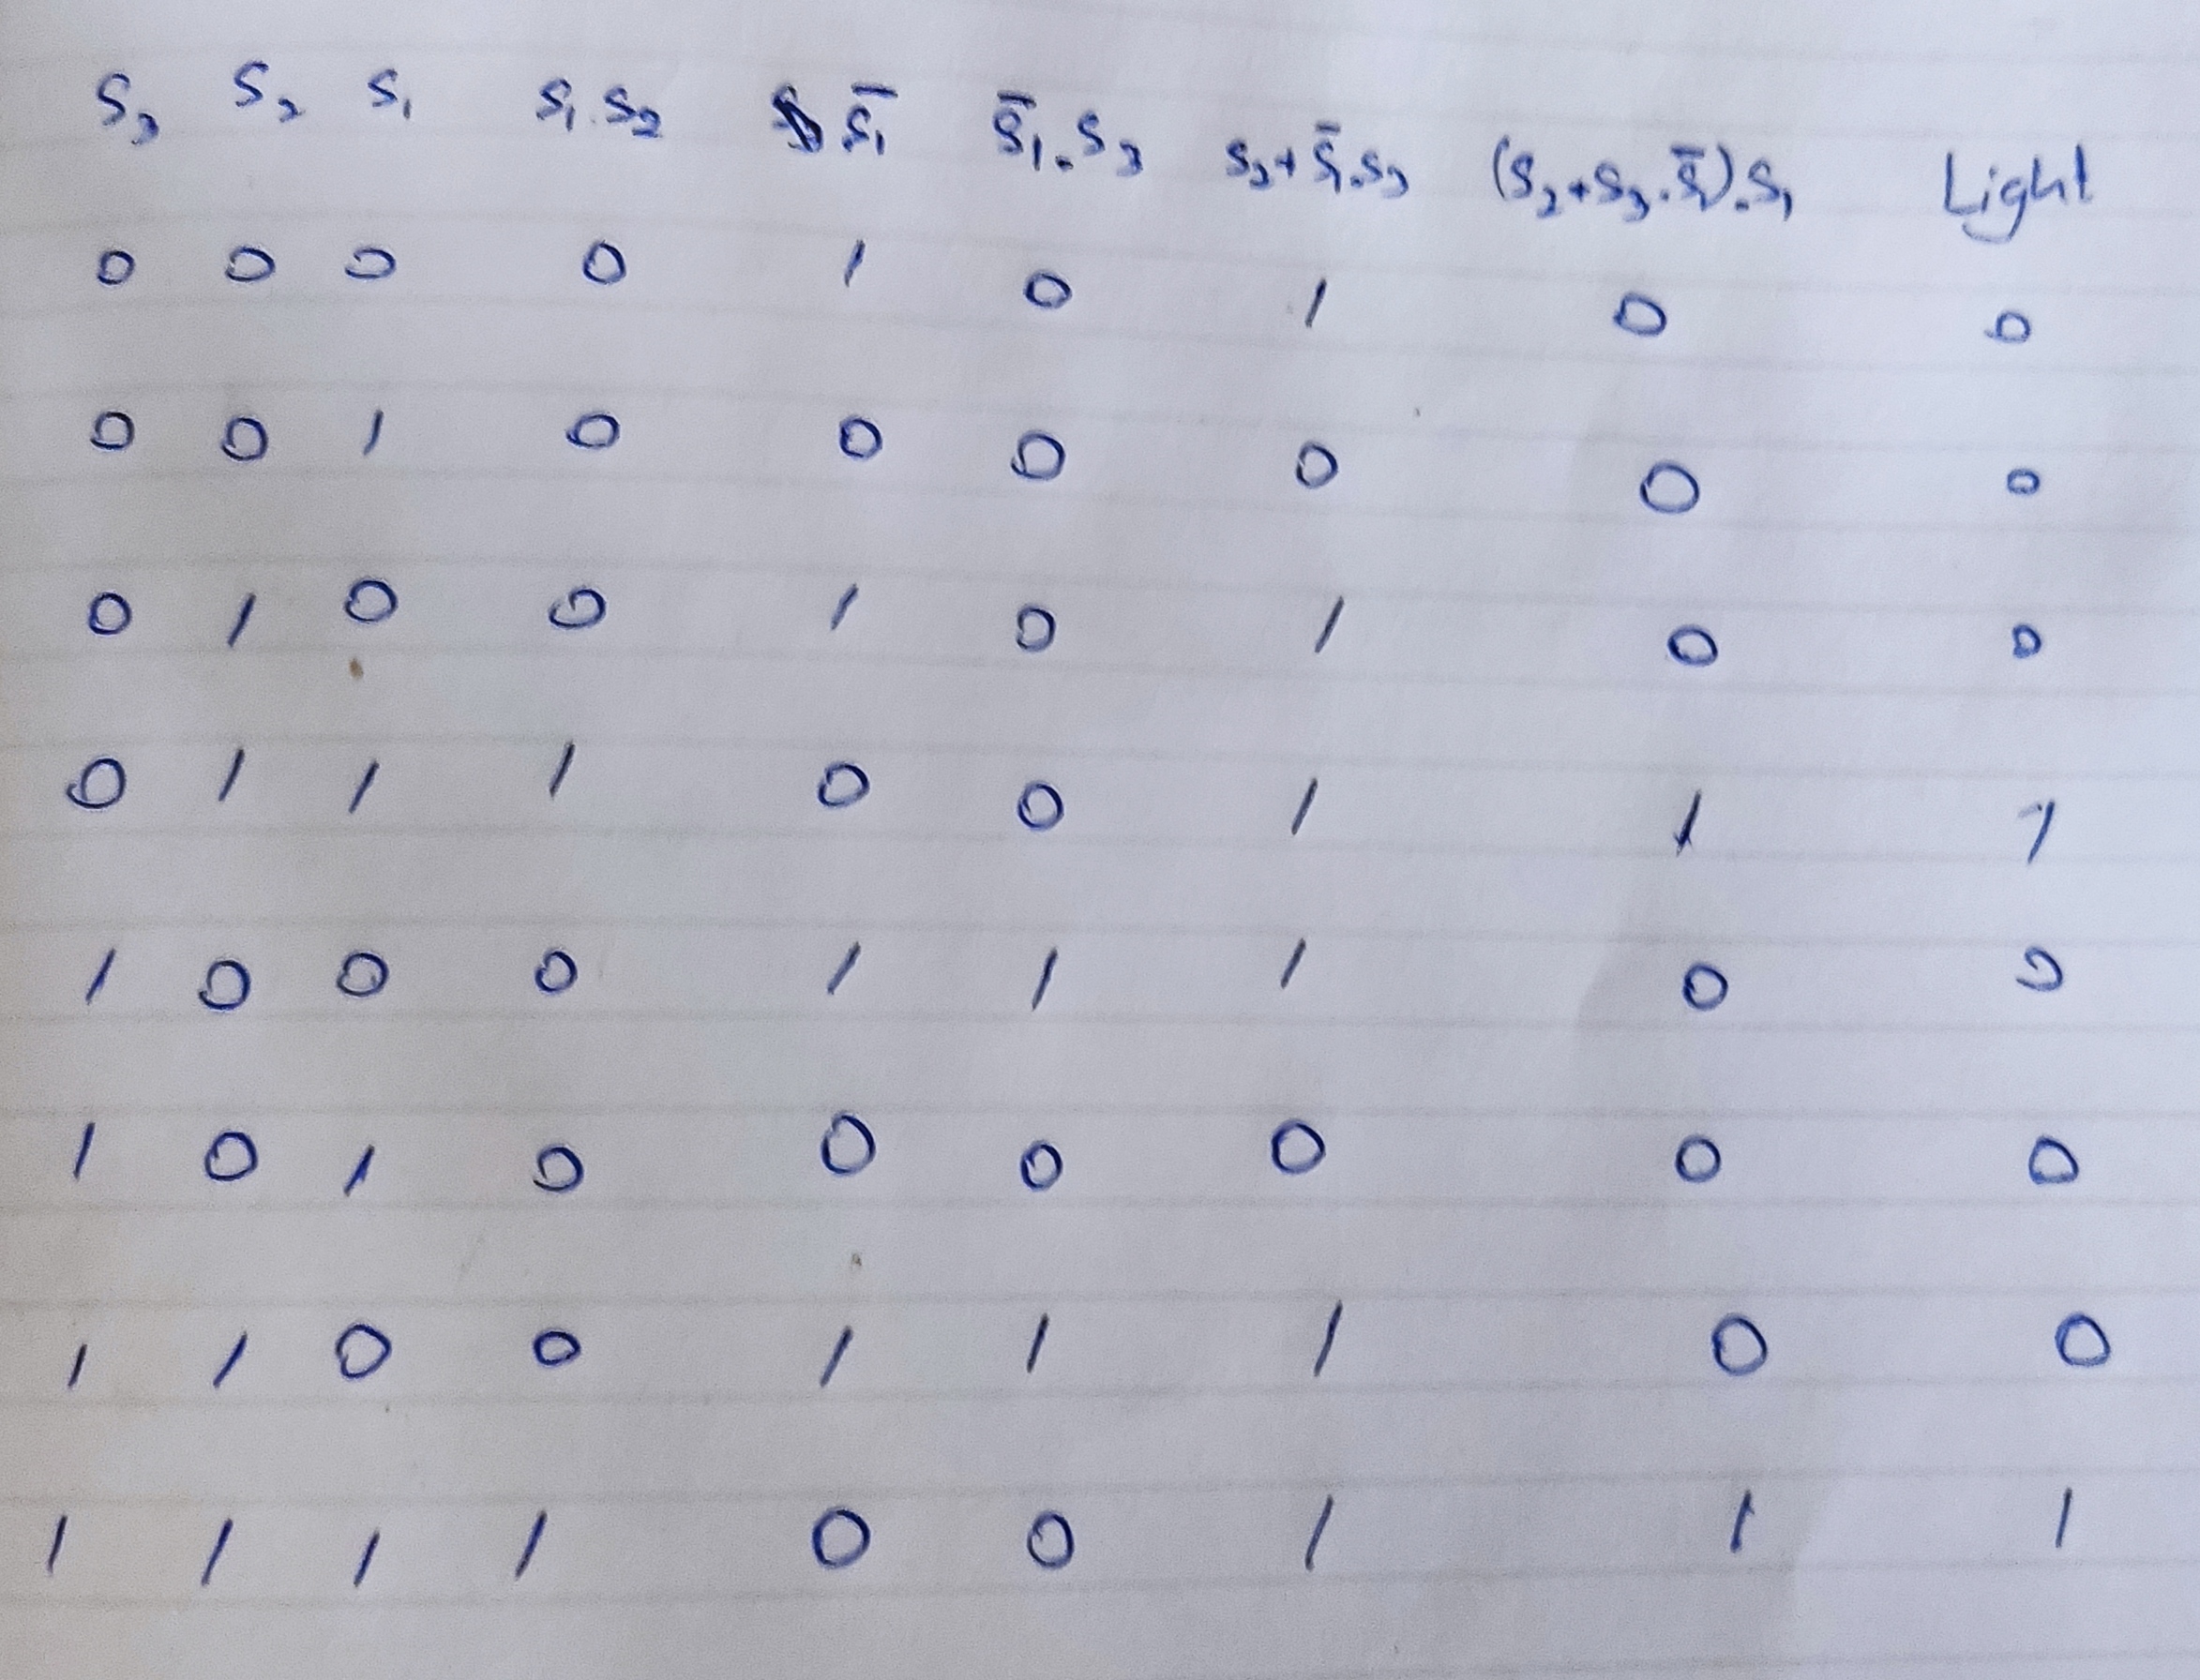 S₃ S₂ S₁ S₁.S₂ S̄₁ S̄₁.S₃ S₂+S̄₁.S₃ (S₂+S₃.S̄₁).S₁ Light
0 0 0 0 1 0 1 0 0
0 0 1 0 0 0 0 0 0
0 1 0 0 1 0 1 0 0
0 1 1 1 0 0 1 1 1
1 0 0 0 1 1 1 0 0
1 0 1 0 0 0 0 0 0
1 1 0 0 1 1 1 0 0
1 1 1 1 0 0 1 1 1